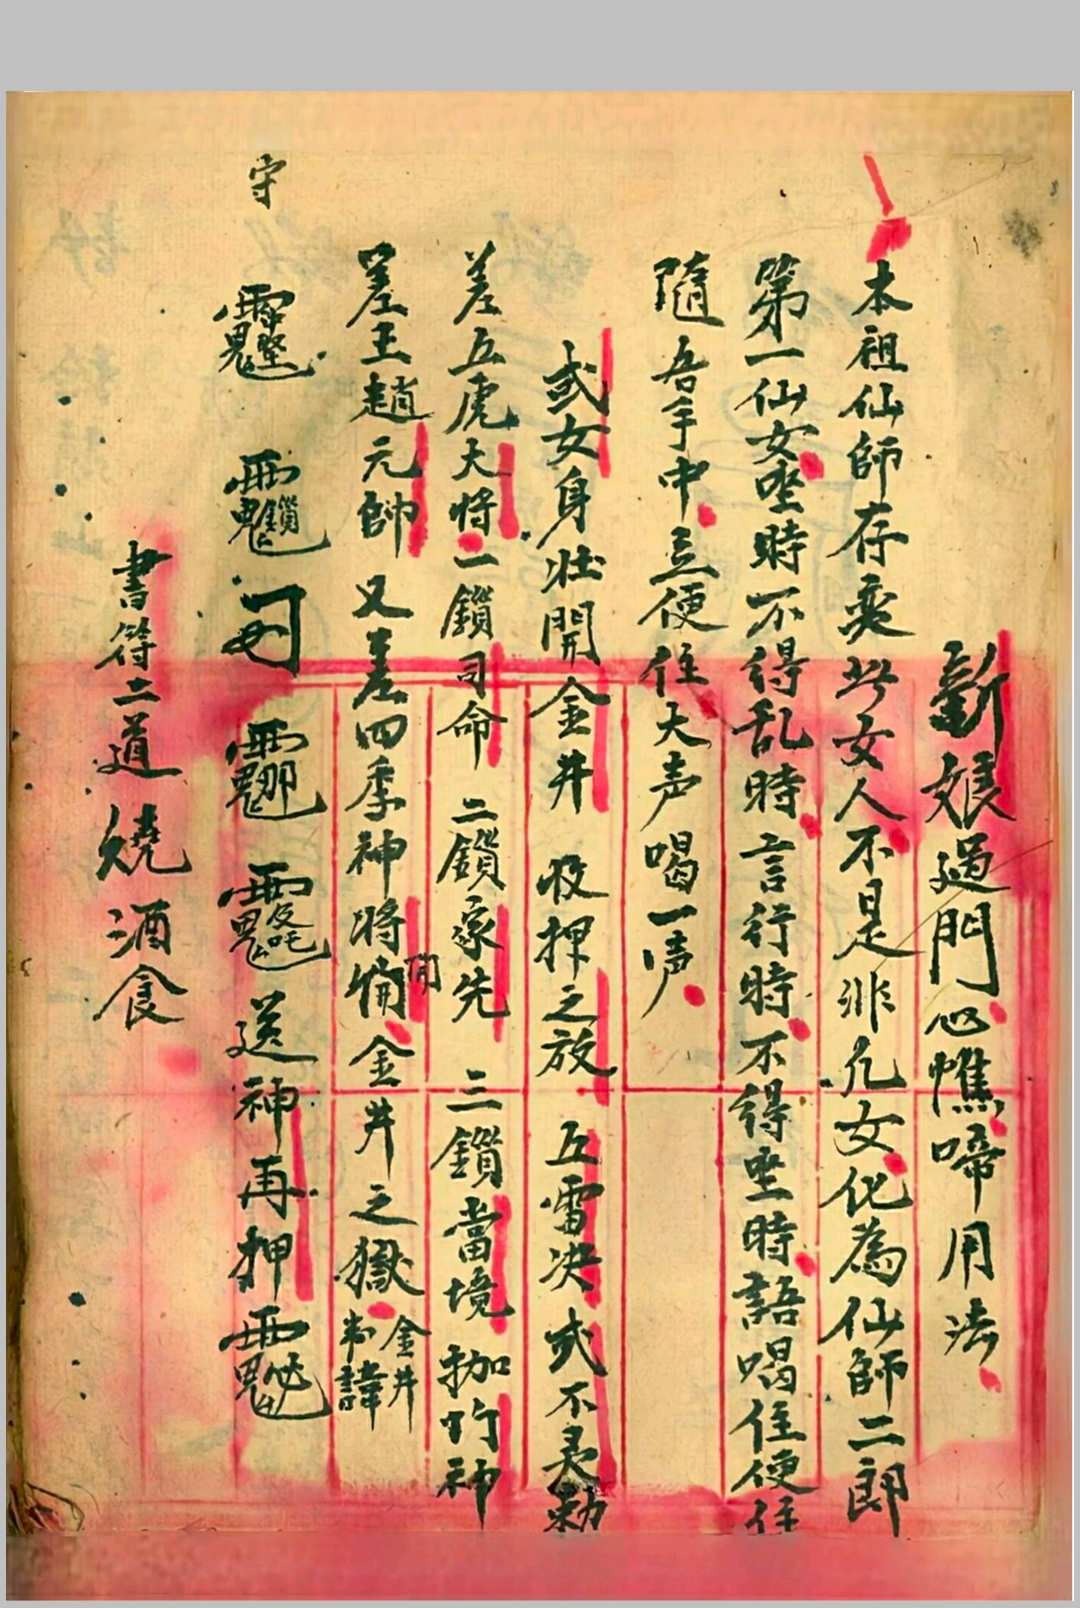 新娘過門心憔啼用法
本祖仙師存変此女人不是非凡女化為仙師二郎
第一仙女坐時不得乱時言行時不得坐時語喝住便住
隨吾手中立便住大声喝一声
或女身壮開金井 收押之放 五雷决式不灵勅
差五虎大将一鎖司命 二鎖家先 三鎖當境 神
差王趙元帥 又差四季神将 開金井之獄 金井 諱
守 送神再押
書符二道燒酒食